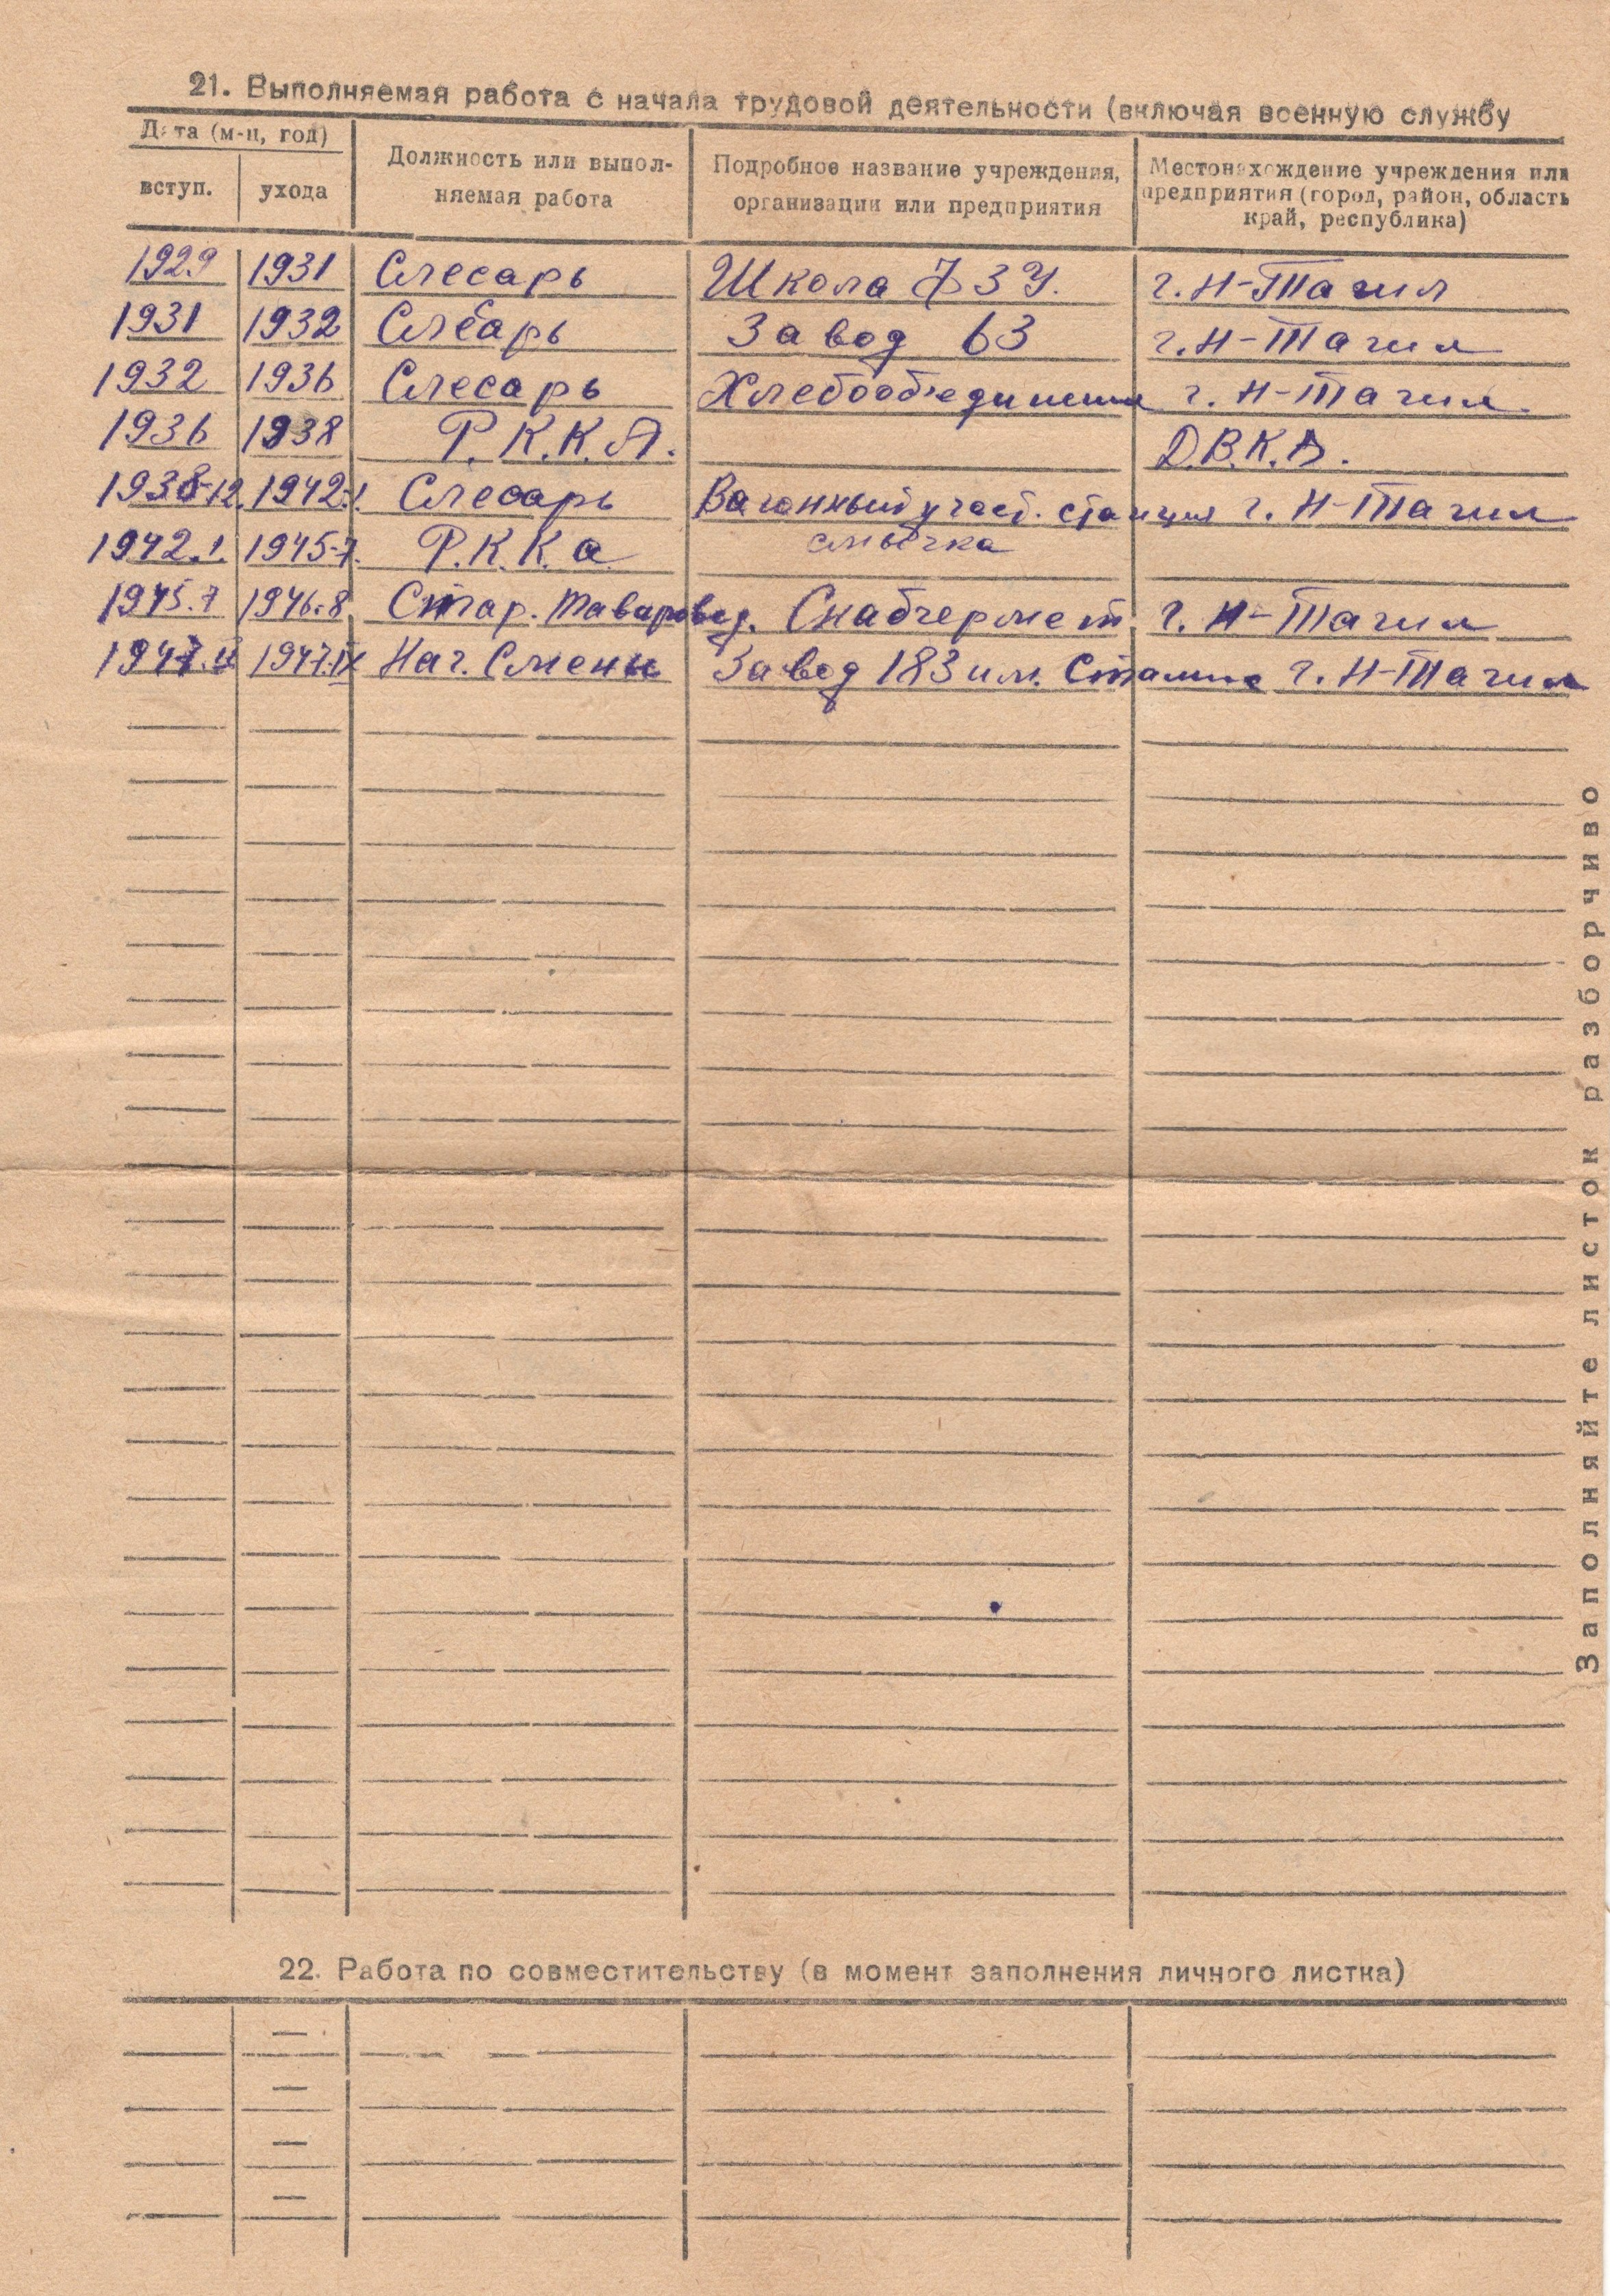 21. Выполняемая работа с начала трудовой деятельности (включая военную службу
Дата (м-ц, год)
вступ. ухода
Должность или выпол-
няемая работа
Подробное название учреждения,
организации или предприятия
Местонахождение учреждения или
предприятия (город, район, область
край, республика)
1929 1931 Слесарь Школа ФЗУ. г. Н-Тагил
1931 1932 Слесарь Завод 63 г. Н-Тагил
1932 1936 Слесарь Хлебооб'единения г. Н-Тагил.
1936 1938 Р.К.К.А. Д.В.К.А.
1938-12. 1942.1. Слесарь Вагонный участ. станция г. Н-Тагил
смычка
1942.1. 1945-7. Р.К.К.а
1945.7 1946.8 Стар. Таваровед. Снабчермет г. Н-Тагил
1947.II 1947.IX Нач. Смены Завод 183 им. Сталина г. Н-Тагил
Заполняйте листок разборчиво
22. Работа по совместительству (в момент заполнения личного листка)
—
—
—
—